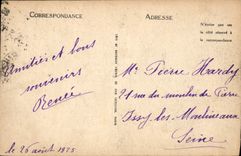 CORRESPONDANCE
ADRESSE
N'écrire que sur
le côté réservé à
la correspondance
Amitiés et bons
souvenirs
Renée
le 26 août 1925
Mr Pierre Hardy
rue du moulin de Pierre
Issy les Moulineaux
Seine